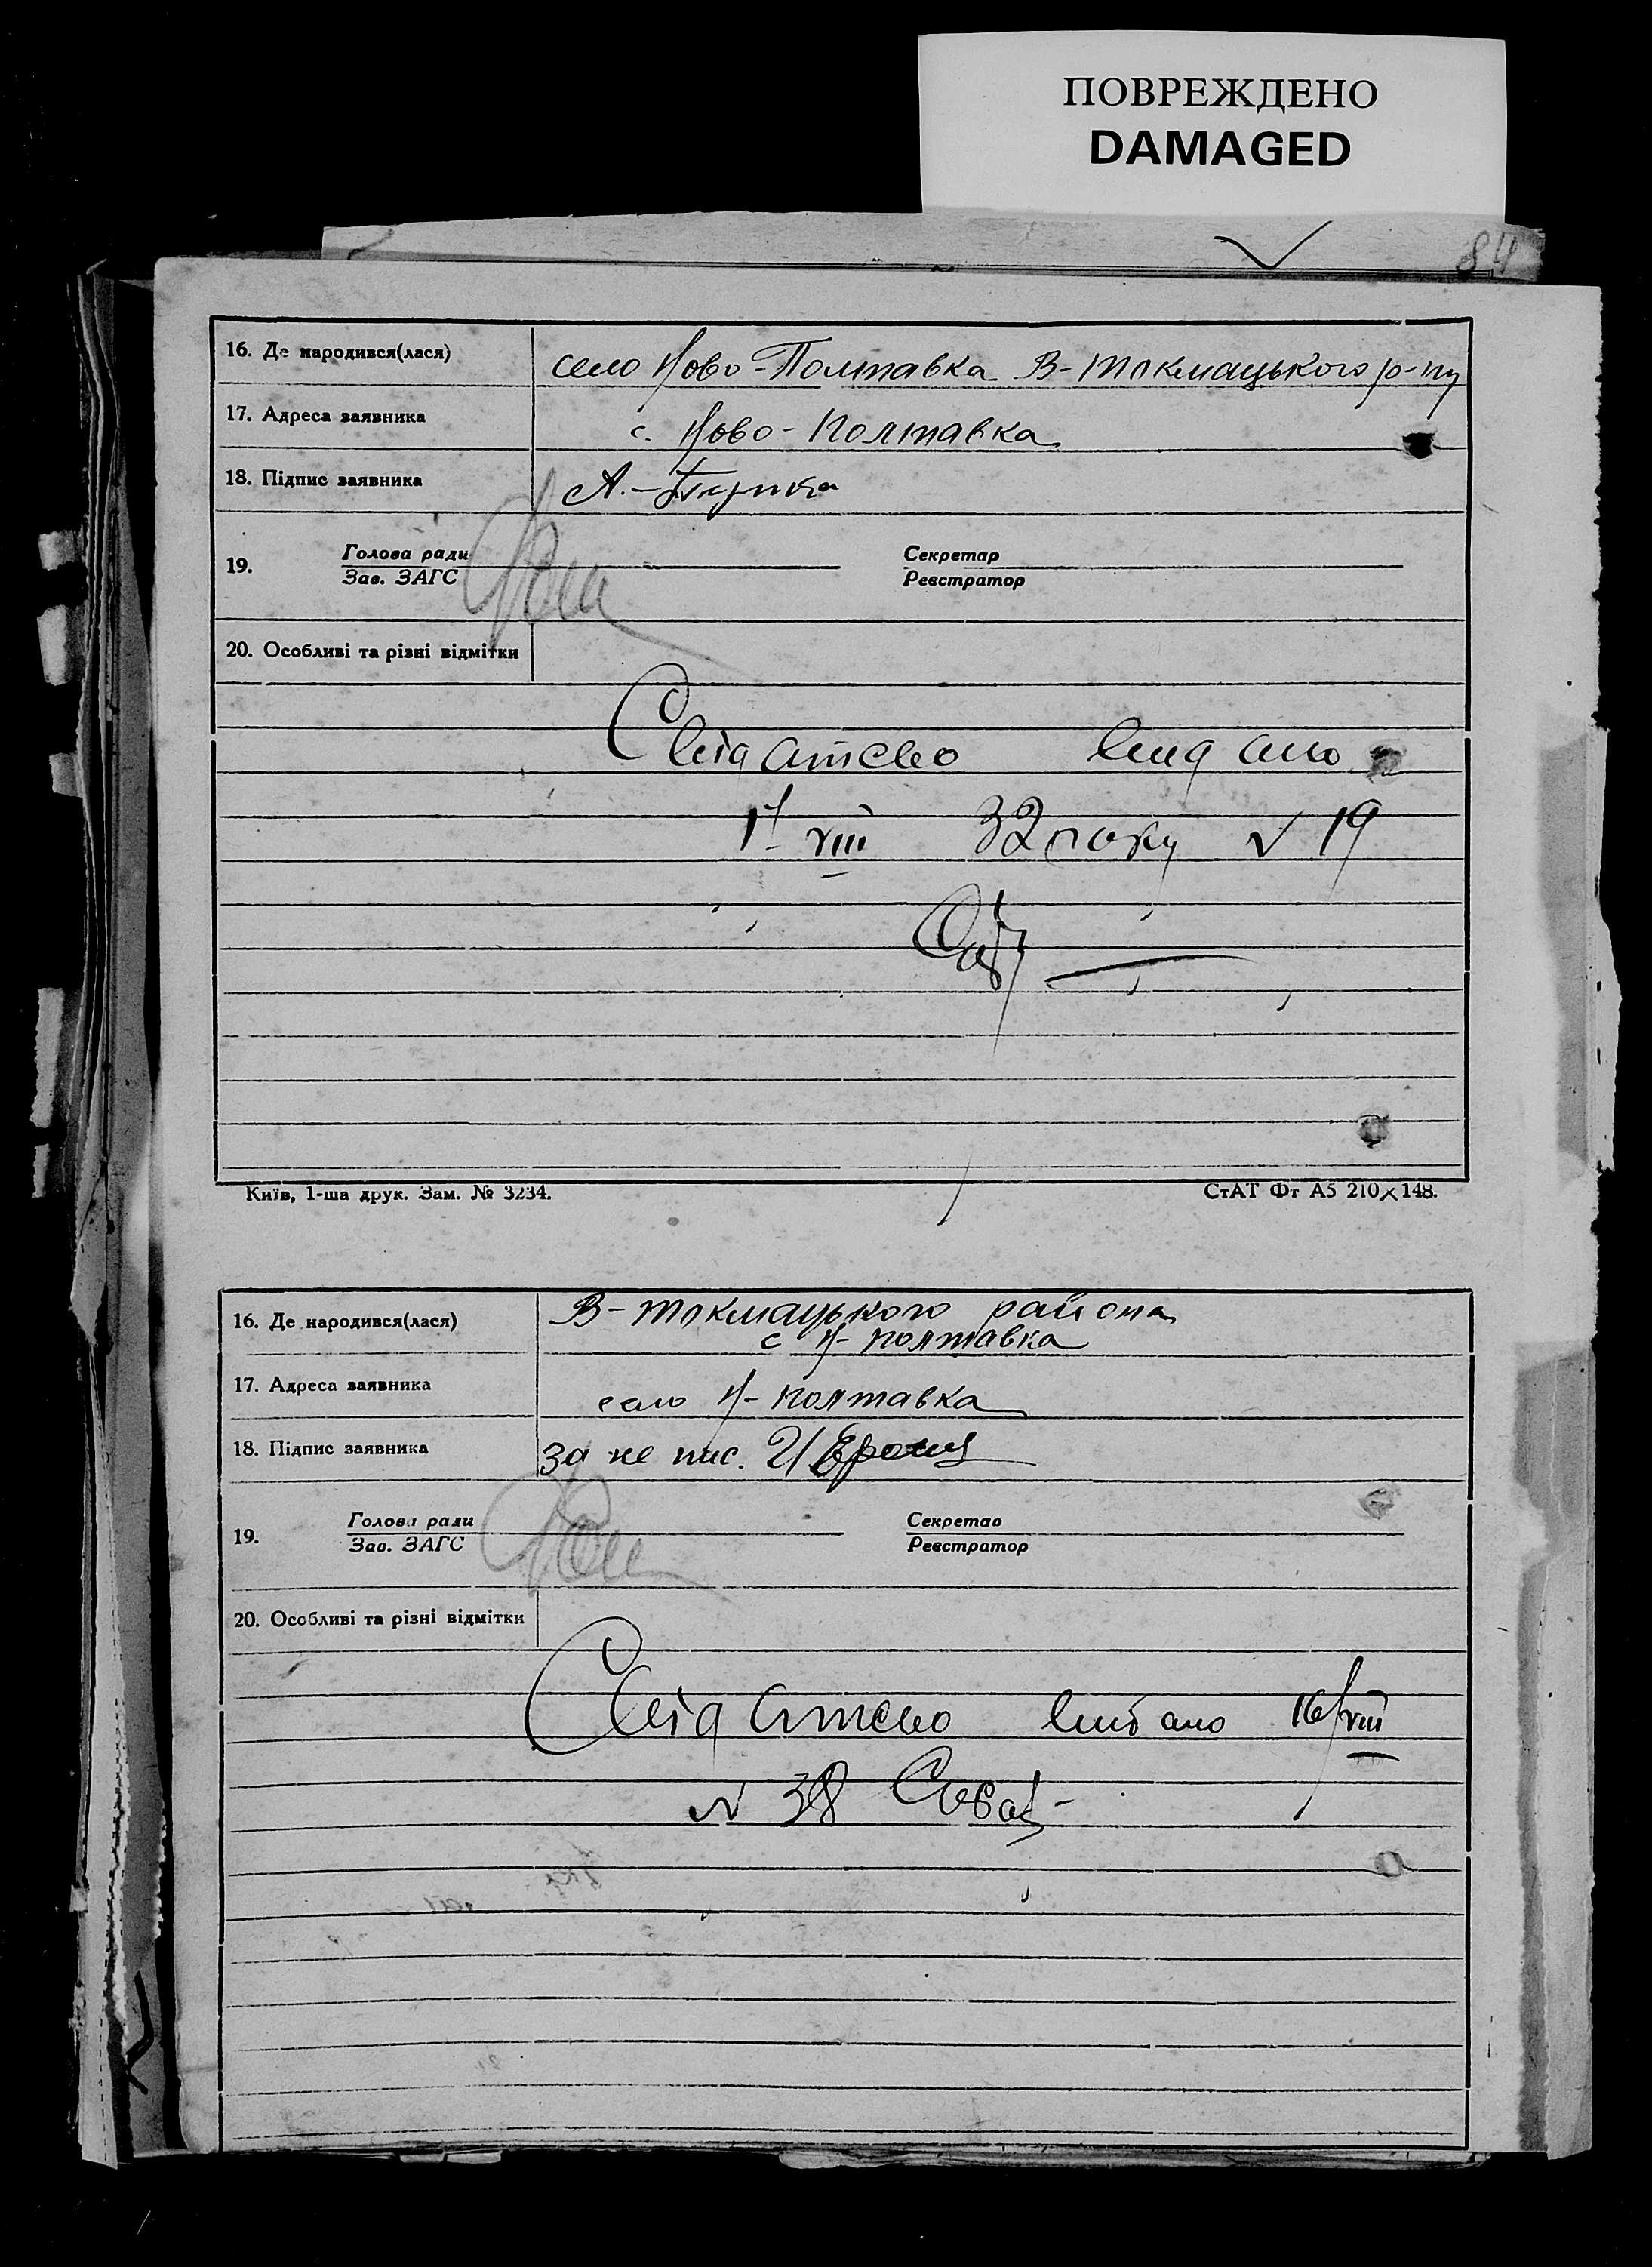 ПОВРЕЖДЕНО
DAMAGED
84
16. Де народився(лася) село Ново-Полтавка В-Токмацького р-ну
17. Адреса заявника с. Ново-Полтавка
18. Підпис заявника А.
19. Голова ради Секретар
Зав. ЗАГС Реєстратор
20. Особливі та різні відмітки
Свідатсво видано
1/VIII 32 року № 19
Київ, 1-ша друк. Зам. № 3234. СтАТ Фт А5 210×148.
16. Де народився(лася) В-Токмацького района
с Н-полтавка
17. Адреса заявника село Н-полтавка
18. Підпис заявника за не пис.
19. Голова ради Секретар
Зав. ЗАГС Реєстратор
20. Особливі та різні відмітки
Свідатсво видано 16/VIII
№ 38